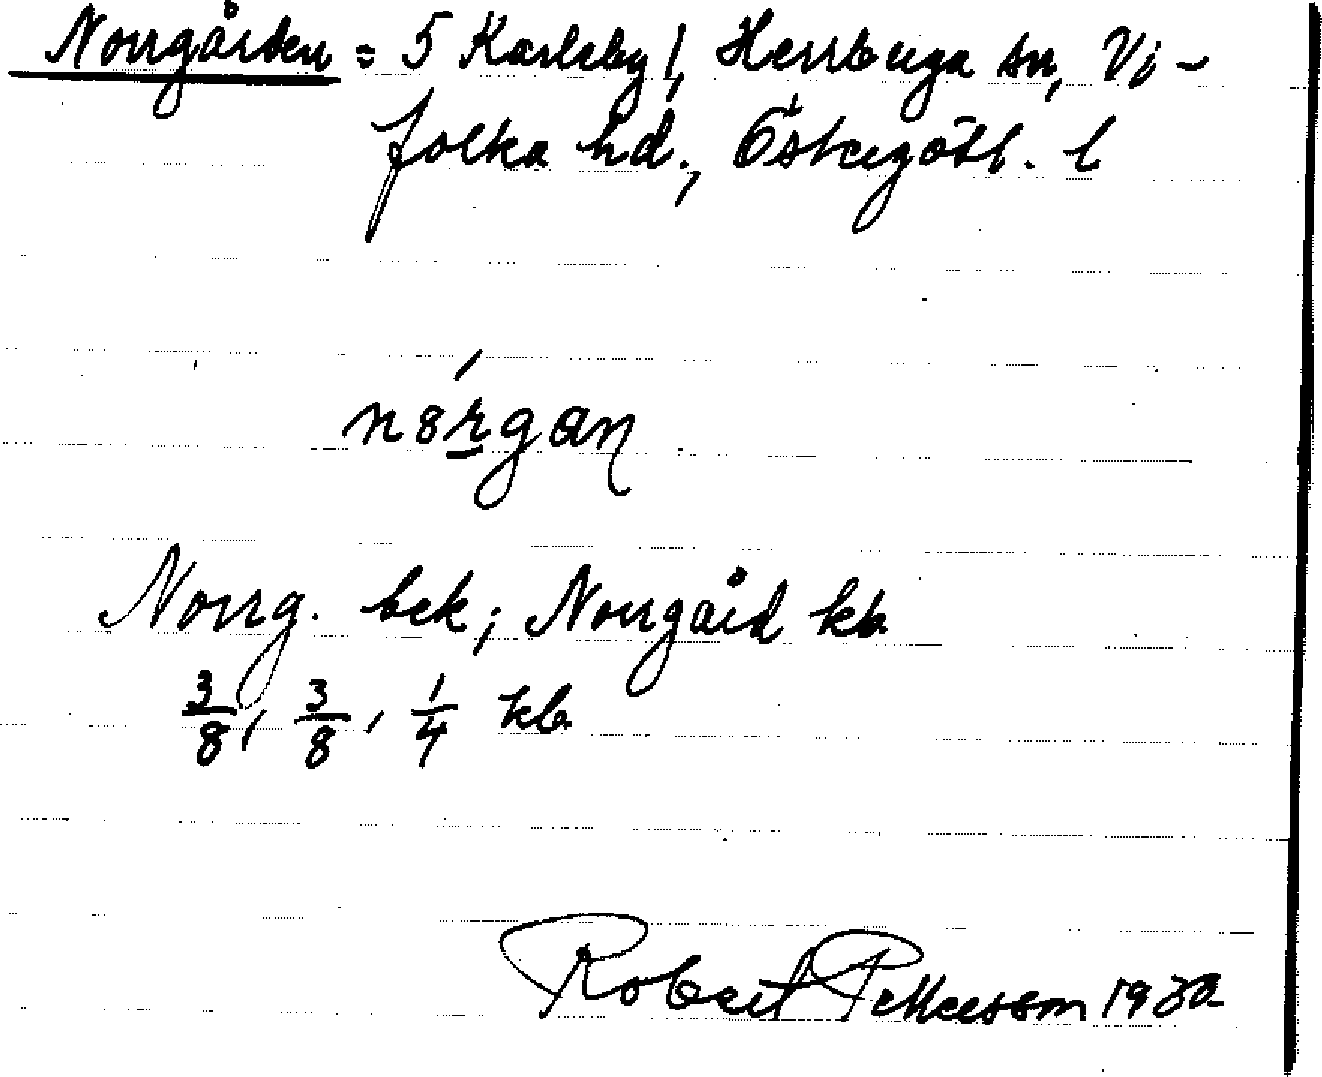 Norrgården = 5 Karleby, Herrberga sn, Vi-
folka hd., Östergötl. l
n8rgan
Norrg. bek; Norrgård kb
3/8, 3/8, 1/4 kb
Robert Pettersson 1930